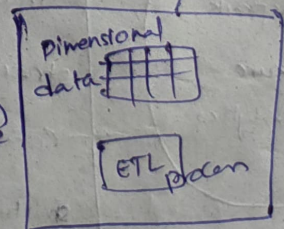 Dimensional
data
ETL
process